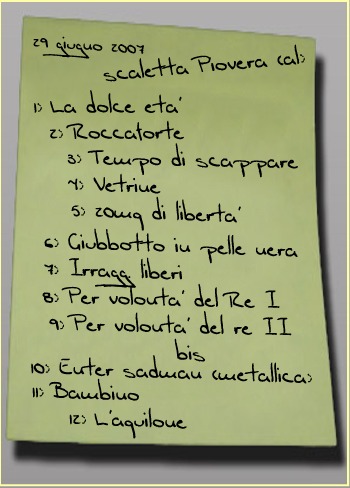 29 giugno 2007
scaletta Piovera (al)
1) La dolce eta'
2) Roccaforte
3) Tempo di scappare
4) Vetrine
5) 20mg di liberta'
6) Giubbotto in pelle nera
7) Irragg. liberi
8) Per volonta' del Re I
9) Per volonta' del re II
bis
10) Enter sadman (metallica)
11) Bambino
12) L'aquilone